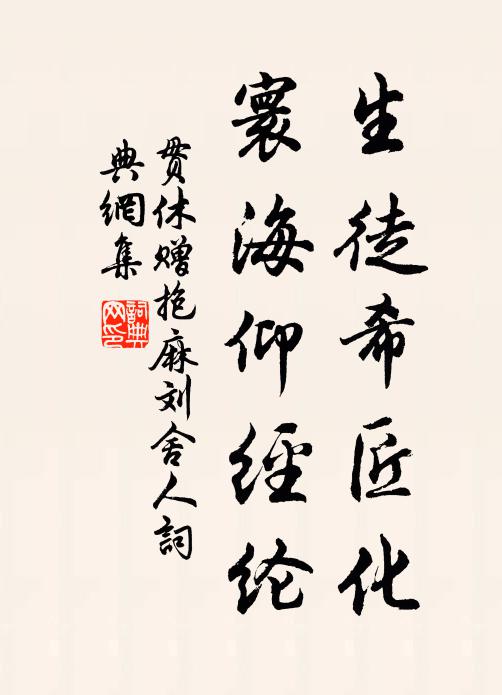 生徒希匠化
寰海仰經纶
贯休赠抱麻刘舍人詞
典網集
詞典网印